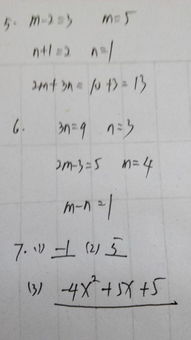 5. m-2=3 m=5
n+1=2 n=1
2m+3n=10+3=13
6. 3n=9 n=3
2m-3=5 m=4
m-n=1
7. (1) -1 (2) 5
(3) -4x²+5x+5